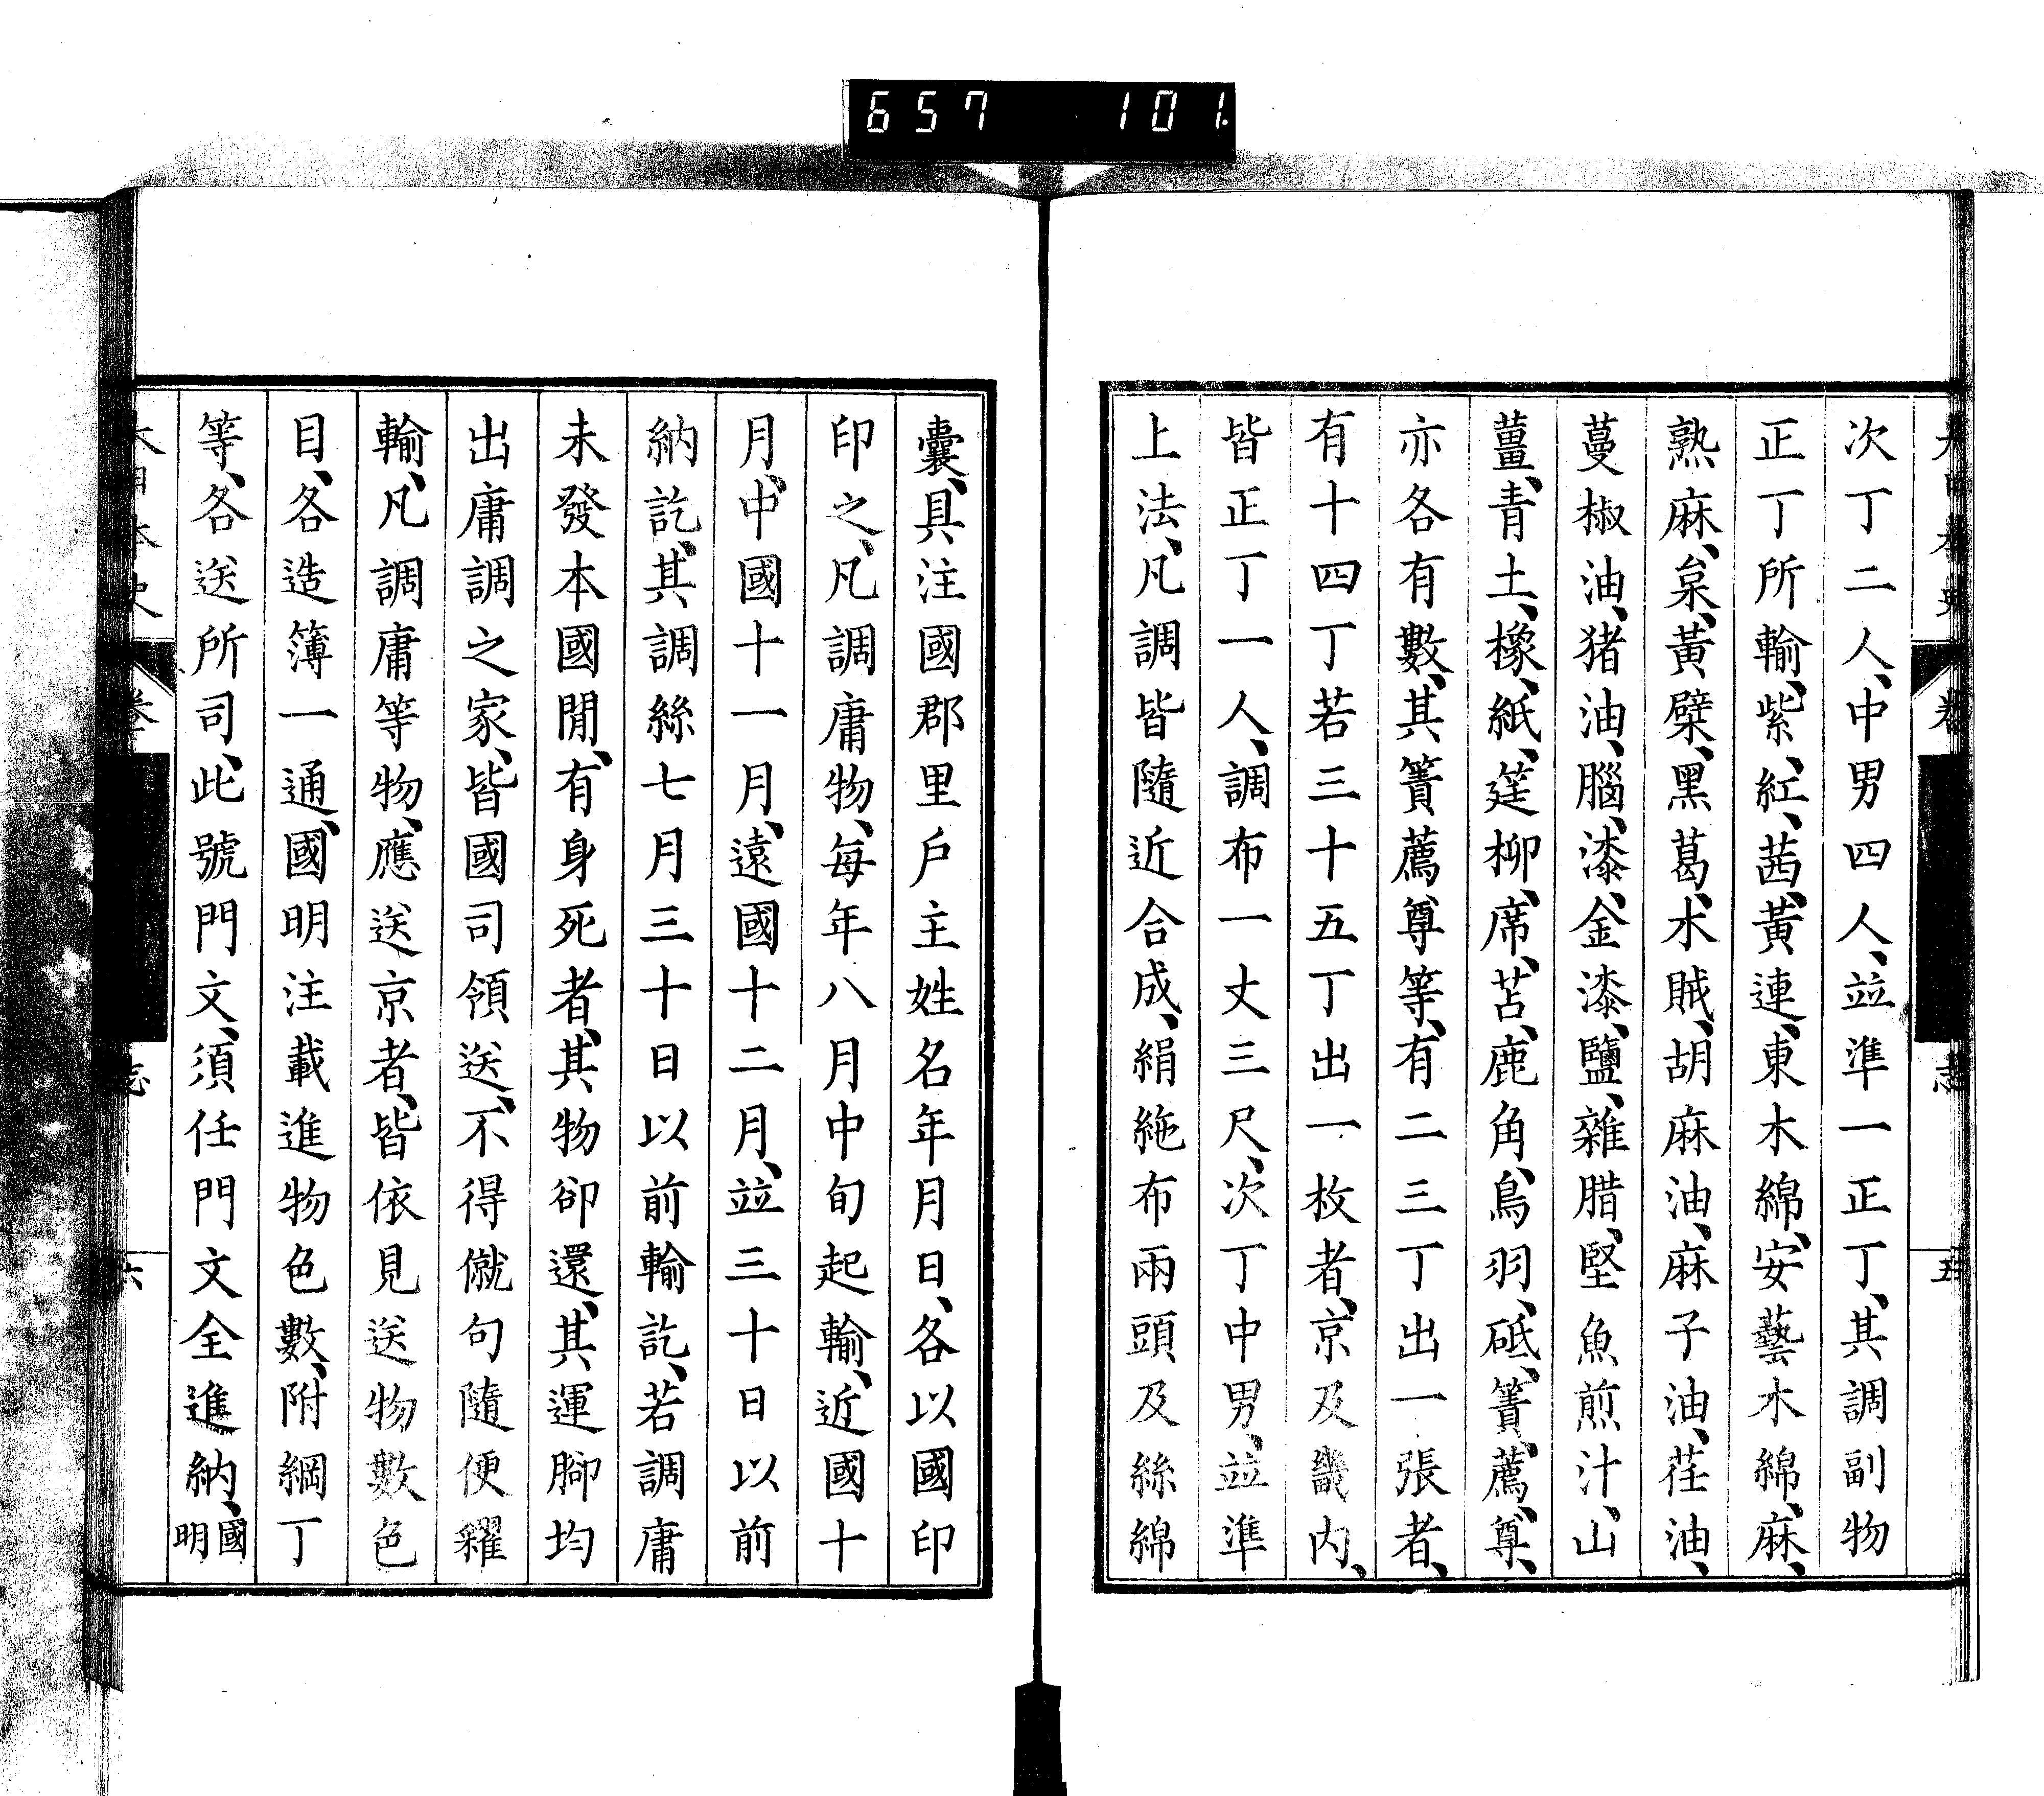 657 101.
大日本史 卷 志 五
次丁二人、中男四人、竝準一正丁、其調副物
正丁所輸、紫、紅、茜、黃連、東木綿、安藝木綿、麻、
熟麻、枲、黃檗、黑葛、木賊、胡麻油、麻子油、荏油、
蔓椒油、猪油、腦、漆、金漆、鹽、雜腊、堅魚煎汁、山
薑、青土、橡、紙、筳柳、席、苫、鹿角、鳥羽、砥、簀、薦、尊、
亦各有數、其簀薦尊等、有二三丁出一張者、
有十四丁若三十五丁出一枚者、京及畿內、
皆正丁一人、調布一丈三尺、次丁中男、竝準
上法、凡調皆隨近合成、絹絁布兩頭及絲綿
囊、具注國郡里戶主姓名年月日、各以國印
印之、凡調庸物、每年八月中旬起輸、近國十
月、中國十一月、遠國十二月、竝三十日以前
納訖、其調絲七月三十日以前輸訖、若調庸
未發本國閒、有身死者、其物卻還、其運腳均
出庸調之家、皆國司領送、不得僦句隨便糴
輸、凡調庸等物、應送京者、皆依見送物數色
目、各造簿一通、國明注載進物色數、附綱丁
等、各送所司、此號門文、須任門文全進納、國
明
大日本史 卷 志 六